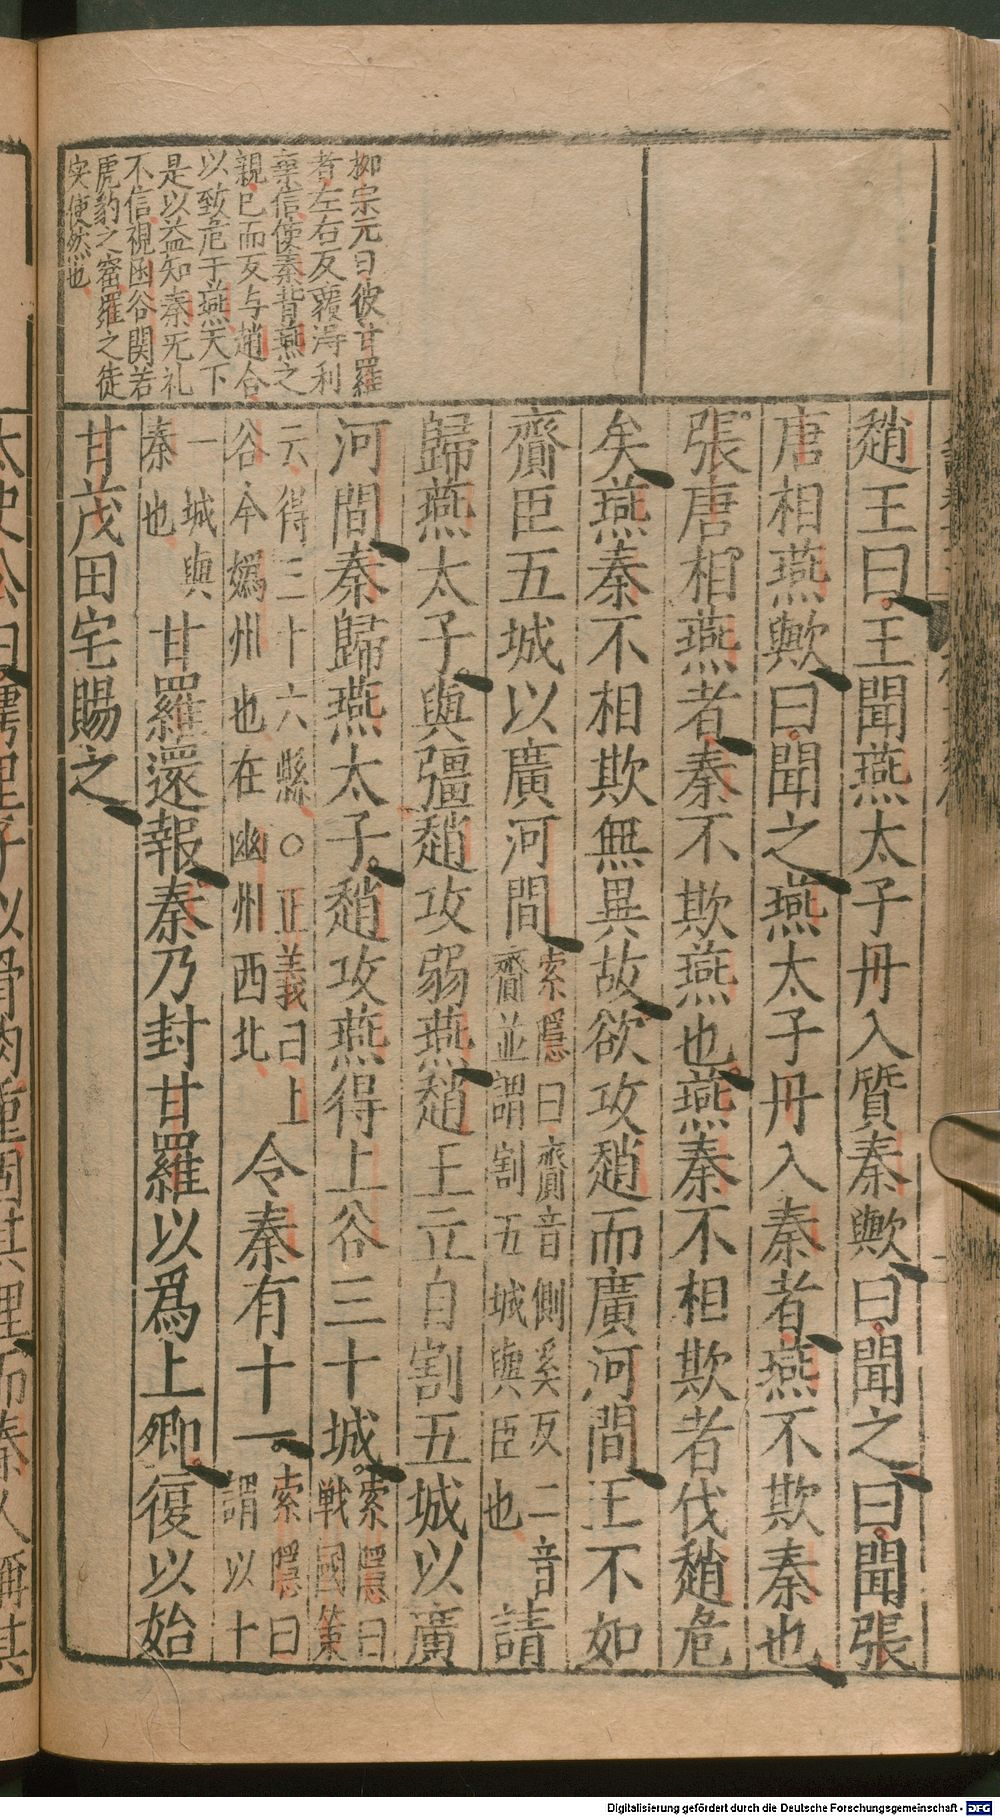 柳宗元曰彼甘羅
者左右反覆得利
棄信使秦背燕之
親已而反与趙合
以致危于燕天下
是以益知秦无礼
不信視函谷関若
虎豹之窟羅之徒
实使然也
趙王曰王聞燕太子丹入質秦歟曰聞之曰聞張
唐相燕歟曰聞之燕太子丹入秦者燕不欺秦也
張唐相燕者秦不欺燕也燕秦不相欺者伐趙危
矣燕秦不相欺無異故欲攻趙而廣河間王不如
齎臣五城以廣河間索隱曰齎音側奚反二音齎並謂割五城與臣也請
歸燕太子與彊趙攻弱燕趙王立自割五城以廣
河間秦歸燕太子趙攻燕得上谷三十城索隱曰戦國策
云得三十六縣○正義曰上谷今嬀州也在幽州西北令秦有十一索隱曰謂以十
一城與秦也甘羅還報秦乃封甘羅以爲上卿復以始
甘茂田宅賜之
太史公曰樗里子以骨肉重固其理而秦人稱其
Digitalisierung gefördert durch die Deutsche Forschungsgemeinschaft - DFG